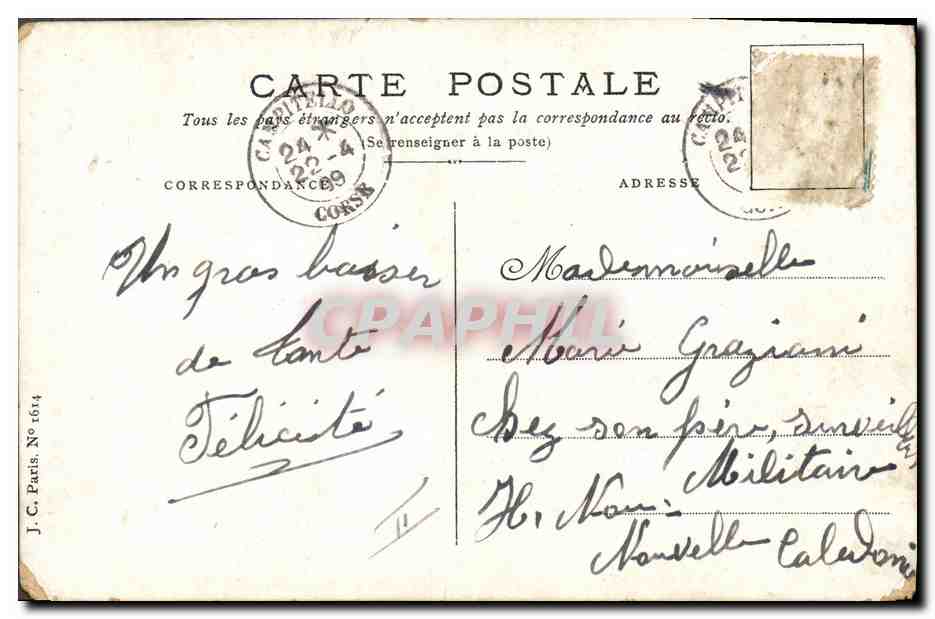 CARTE POSTALE
Tous les pays étrangers n'acceptent pas la correspondance au recto.
(Se renseigner à la poste)
CORRESPONDANCE
ADRESSE
CAMPITELLO
24 *
22 - 4
09
CORSE
CAMPIT
24
22
Un gros baiser
de tante
Félicité
Mademoiselle
Marie Graziani
chez son père, surveill
Militaire
Nouvelle Caledonie
II
J. C. Paris. Nº 1614
CPAPHIL